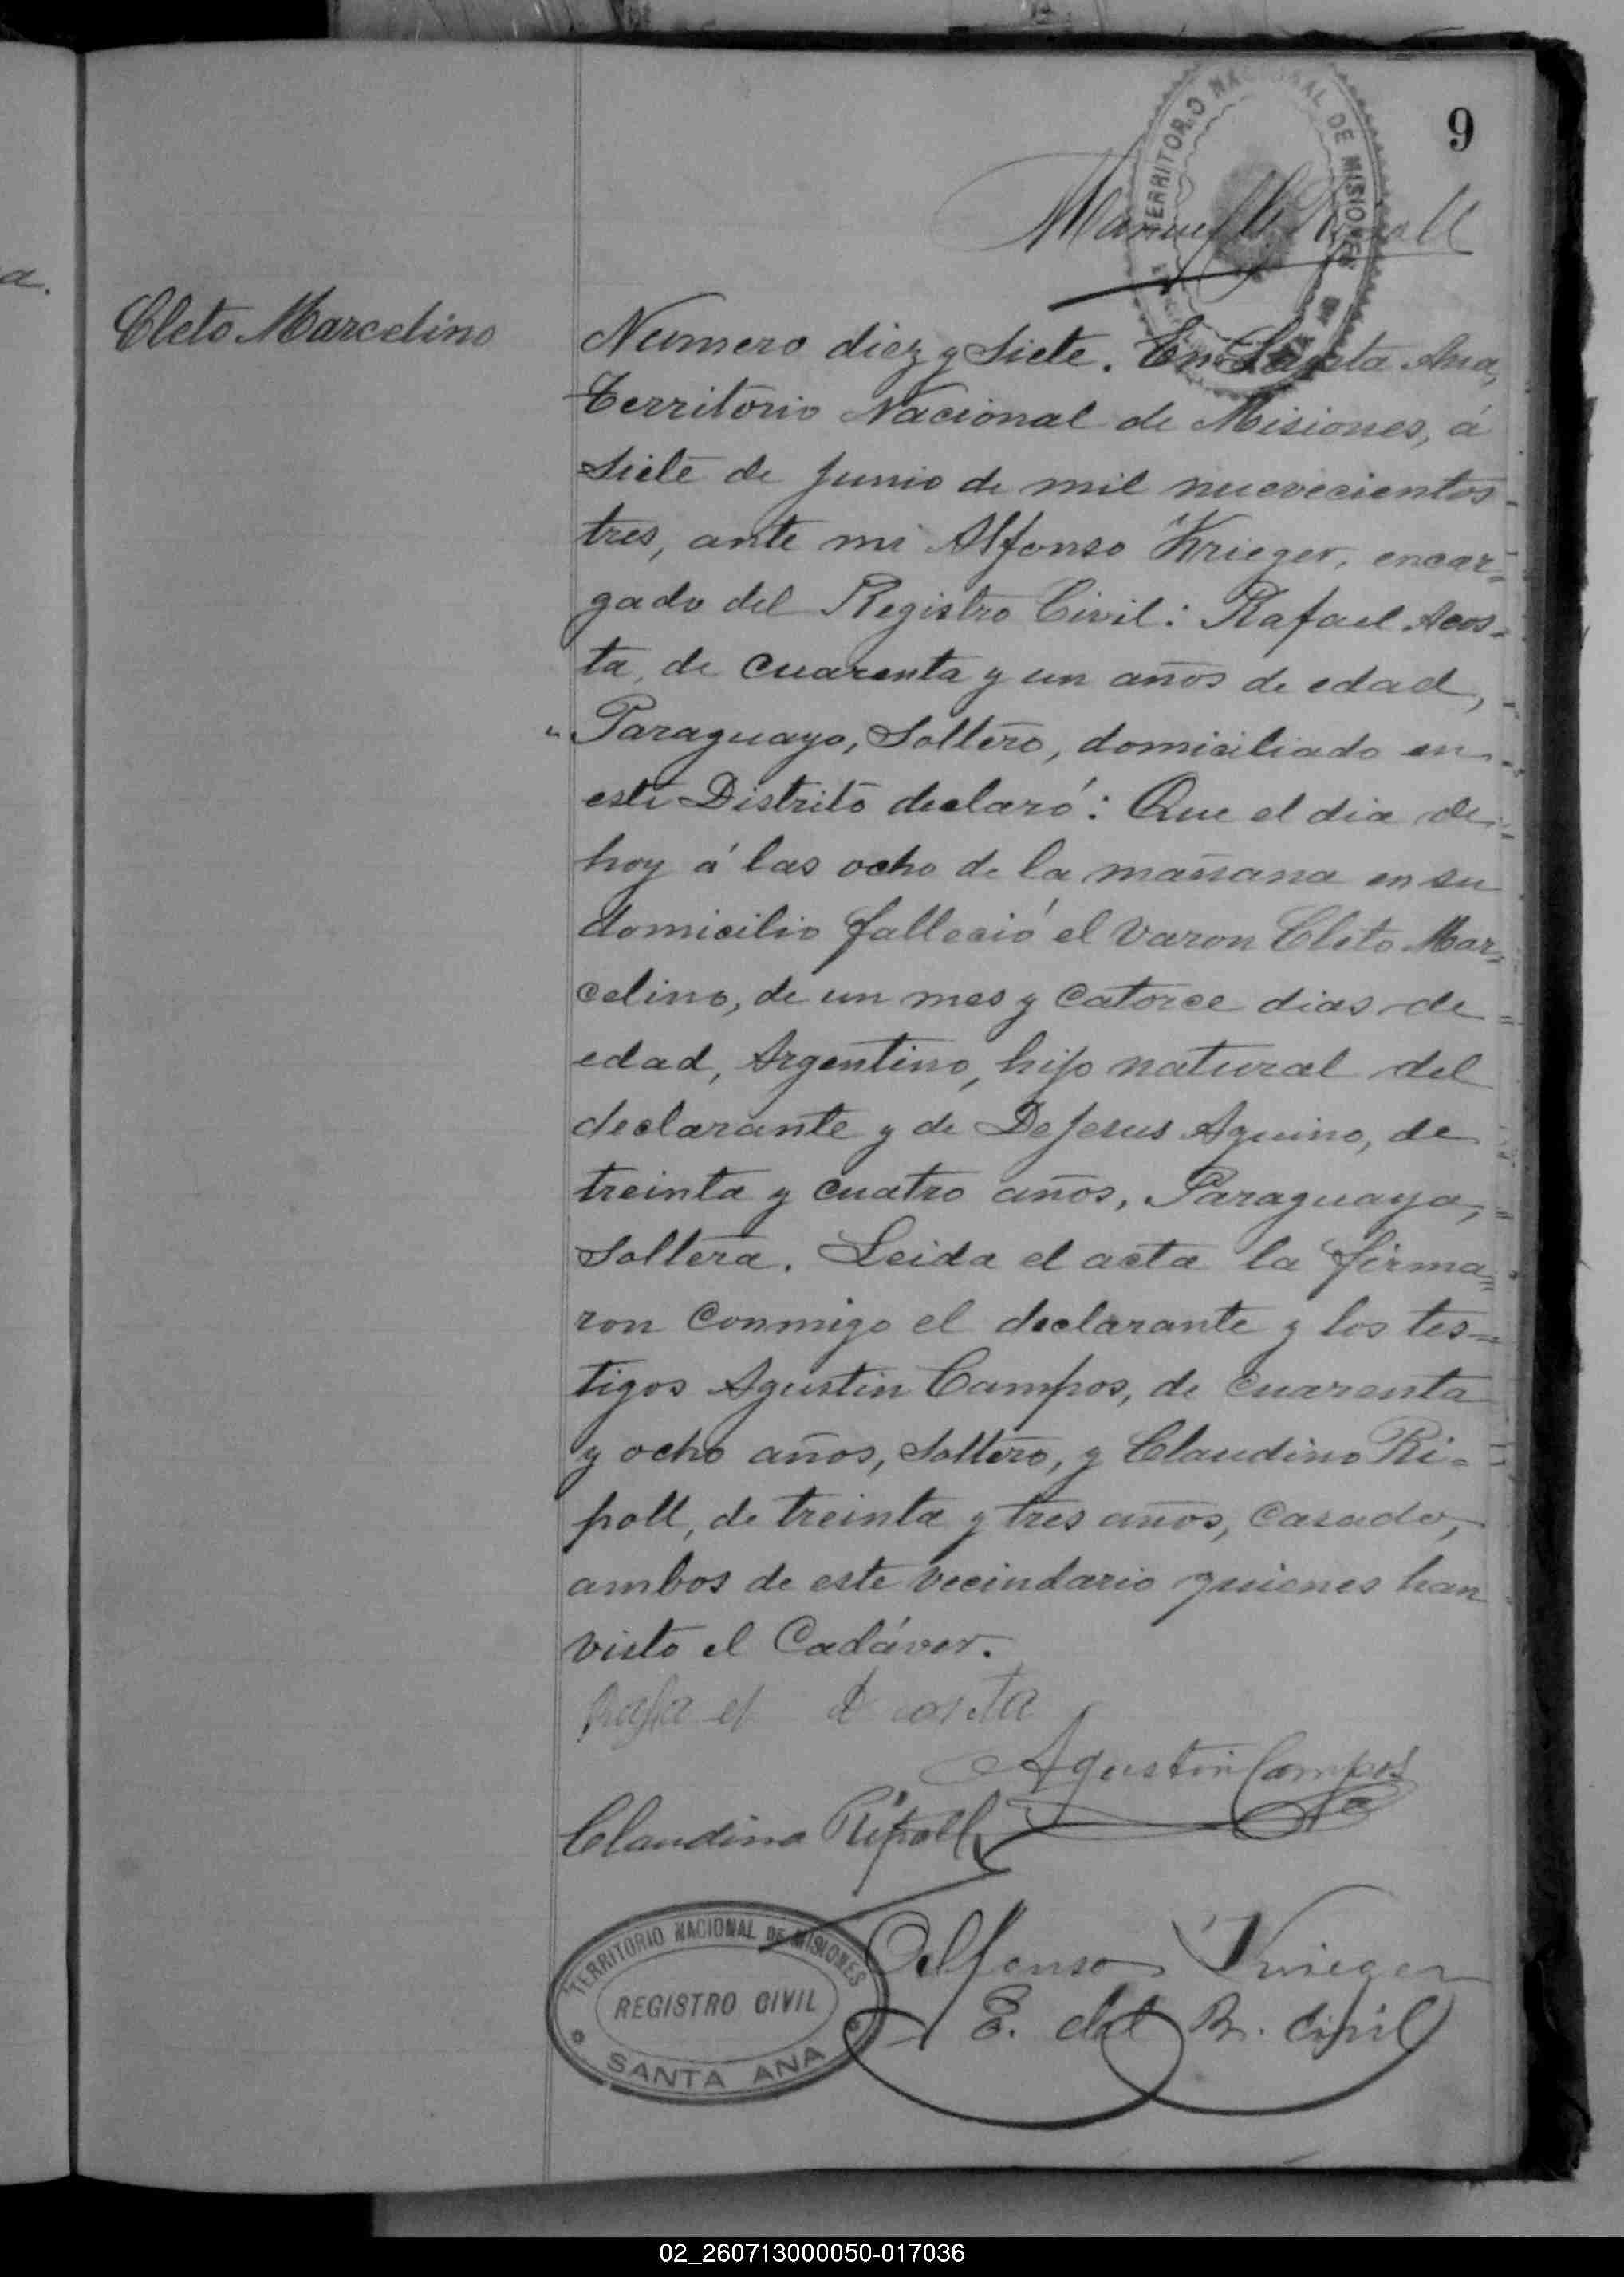 9
TERRITORIO NACIONAL DE MISIONES
Manuel
a.
Cleto Marcelino
Numero diez y Siete. En Santa Ana,
Territorio Nacional de Misiones, á
Siete de Junio de mil nuevecientos
tres, ante mi Alfonso Krieger, encar=
gado del Registro Civil: Rafael Acos=
ta, de cuarenta y un años de edad,
Paraguayo, Soltero, domiciliado en
este Distrito declaró: Que el dia de
hoy á las ocho de la mañana en su
domicilio falleció el varon Cleto Mar=
celino, de un mes y catorce dias de
edad, Argentino, hijo natural del
declarante y de DeJesus Aquino, de
treinta y cuatro años, Paraguaya,
Soltera. Leida el acta la firma=
ron conmigo el declarante y los tes=
tigos Agustin Campos, de cuarenta
y ocho años, Soltero, y Claudino Ri=
poll, de treinta y tres años, Casado,
ambos de este vecindario quienes han
visto el Cadáver.
Rafael Acosta
Agustin Campos
Claudino Ripoll
TERRITORIO NACIONAL DE MISIONES
REGISTRO CIVIL
SANTA ANA
Alfonso Krieger
E. del R. Civil
02_260713000050-017036